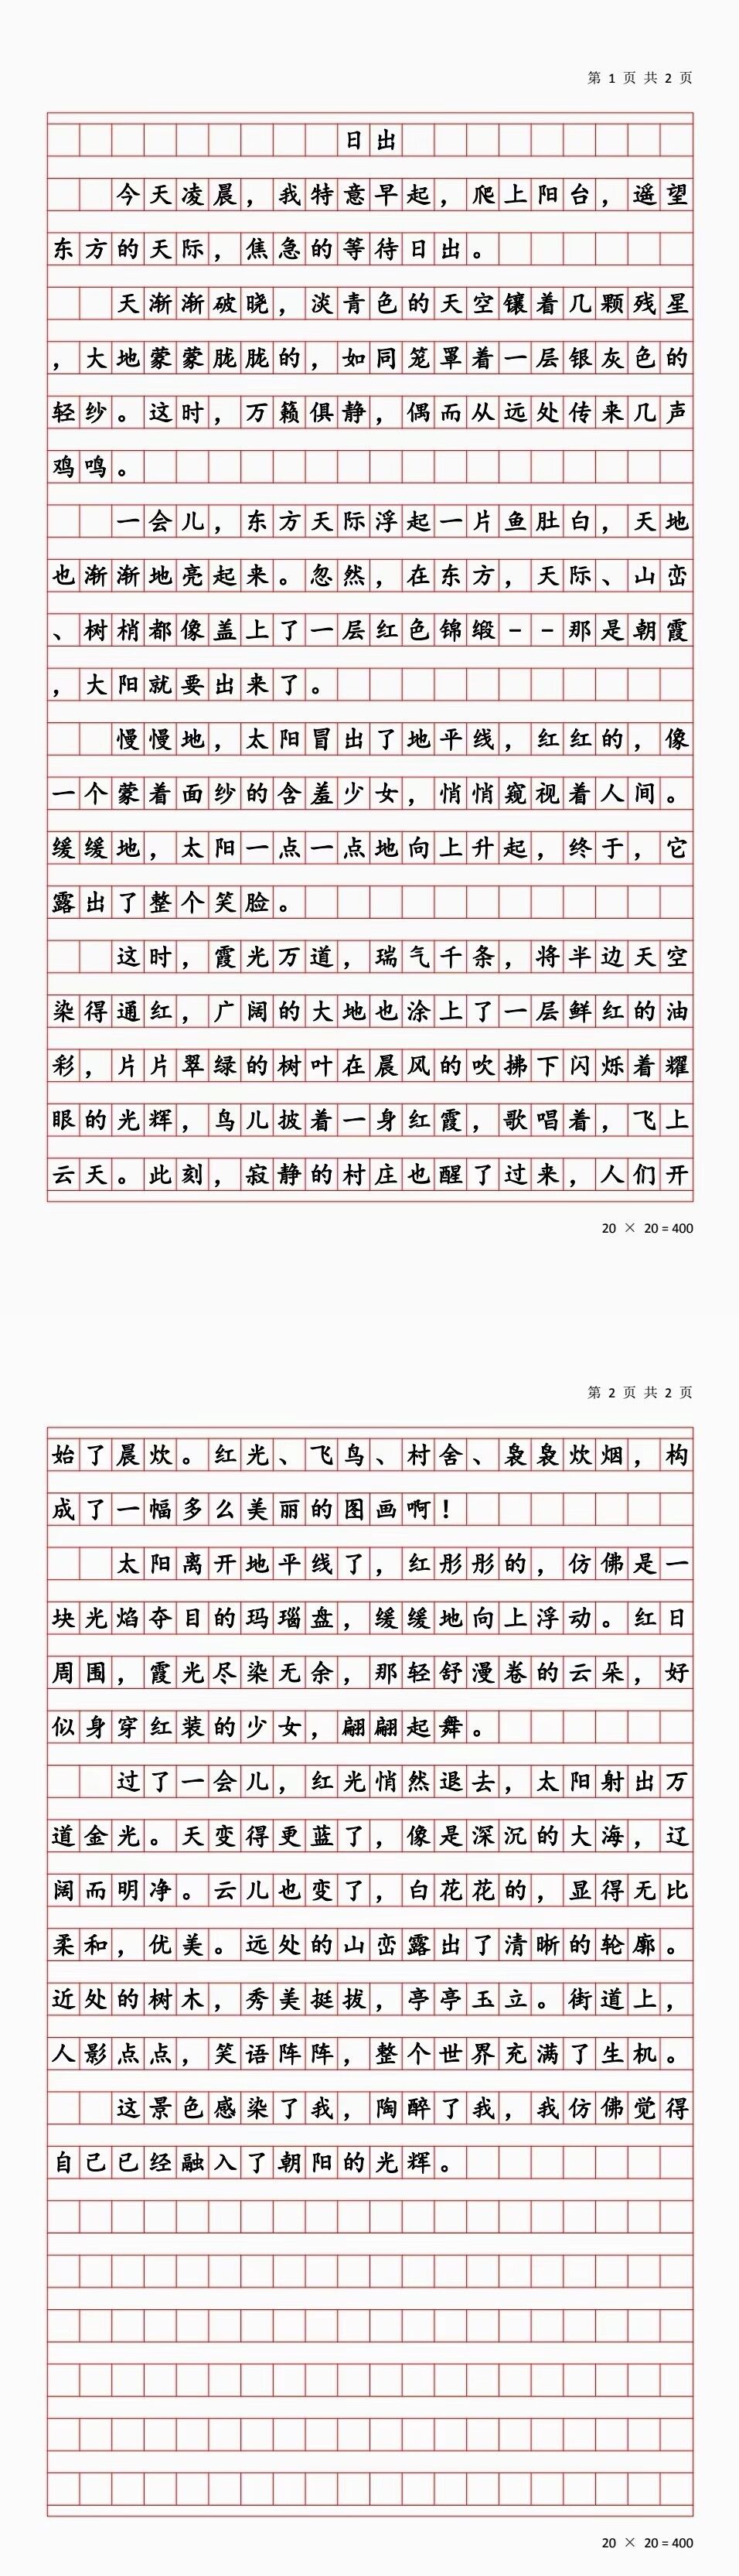 第 1 页 共 2 页
日出
今天凌晨，我特意早起，爬上阳台，遥望
东方的天际，焦急的等待日出。
天渐渐破晓，淡青色的天空镶着几颗残星
，大地蒙蒙胧胧的，如同笼罩着一层银灰色的
轻纱。这时，万籁俱静，偶而从远处传来几声
鸡鸣。
一会儿，东方天际浮起一片鱼肚白，天地
也渐渐地亮起来。忽然，在东方，天际、山峦
、树梢都像盖上了一层红色锦缎--那是朝霞
，大阳就要出来了。
慢慢地，太阳冒出了地平线，红红的，像
一个蒙着面纱的含羞少女，悄悄窥视着人间。
缓缓地，太阳一点一点地向上升起，终于，它
露出了整个笑脸。
这时，霞光万道，瑞气千条，将半边天空
染得通红，广阔的大地也涂上了一层鲜红的油
彩，片片翠绿的树叶在晨风的吹拂下闪烁着耀
眼的光辉，鸟儿披着一身红霞，歌唱着，飞上
云天。此刻，寂静的村庄也醒了过来，人们开
20 × 20 = 400
第 2 页 共 2 页
始了晨炊。红光、飞鸟、村舍、袅袅炊烟，构
成了一幅多么美丽的图画啊！
太阳离开地平线了，红彤彤的，仿佛是一
块光焰夺目的玛瑙盘，缓缓地向上浮动。红日
周围，霞光尽染无余，那轻舒漫卷的云朵，好
似身穿红装的少女，翩翩起舞。
过了一会儿，红光悄然退去，太阳射出万
道金光。天变得更蓝了，像是深沉的大海，辽
阔而明净。云儿也变了，白花花的，显得无比
柔和，优美。远处的山峦露出了清晰的轮廓。
近处的树木，秀美挺拔，亭亭玉立。街道上，
人影点点，笑语阵阵，整个世界充满了生机。
这景色感染了我，陶醉了我，我仿佛觉得
自己已经融入了朝阳的光辉。
20 × 20 = 400